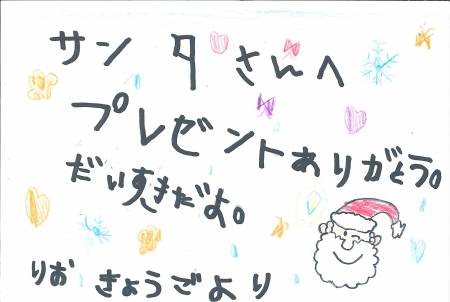 サンタさんへ
プレゼントありがとう。
だいすきだよ。
りお きょうごより